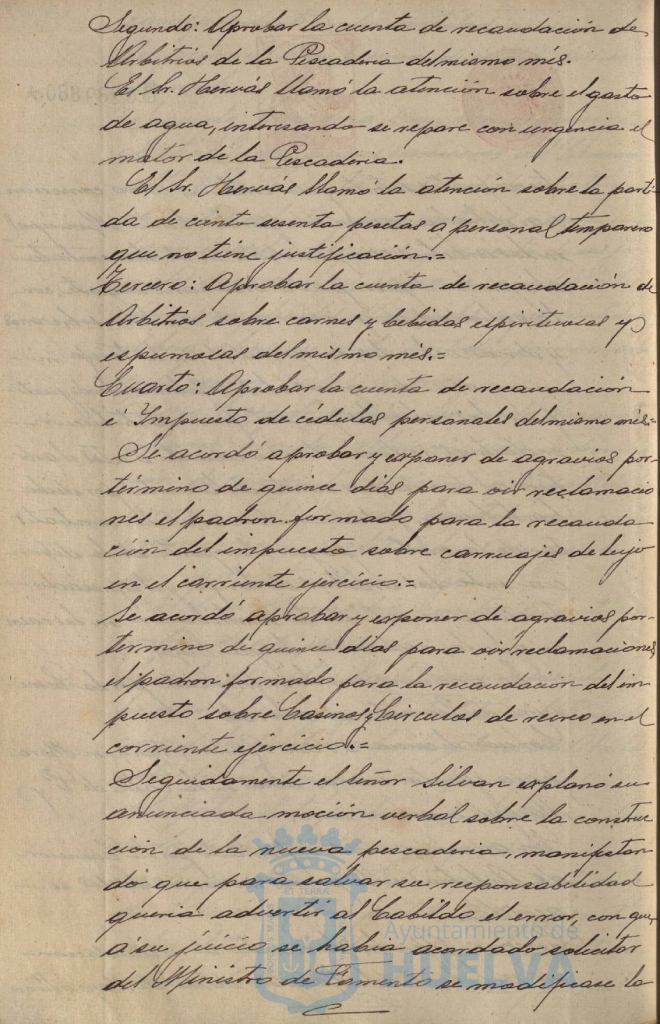 Segundo: Aprobar la cuenta de recaudación de
Arbitrios de la Pescaderia del mismo més.
El Sr. Hervás llamó la atención sobre el gasto
de agua, interesando se repare con urgencia el
motor de la Pescaderia.
El Sr. Hervás llamó la atención sobre la parti-
da de ciento sesenta pesetas á personal temporero
que no tiene justificación.=
Tercero: Aprobar la cuenta de recaudación de
Arbitrios sobre carnes y bebidas espirituosas y
espumosas del mismo més.=
Cuarto: Aprobar la cuenta de recaudación
é Impuesto de cédulas personales del mismo més.=
Se acordó aprobar y exponer de agravios por-
término de quince dias para oir reclamacio
nes el padron formado para la recauda
ción del impuesto sobre carruajes de lujo
en el corriente ejercicio.=
Se acordó aprobar y exponer de agravios por-
termino de quince días para oir reclamaciones,
el padron formado para la recaudación del im
puesto sobre Casinos y Circulos de recreo en el
corriente ejercicio.=
Seguidamente el Señor Silvan explanó su
anunciada moción verbal sobre la construc
ción de la nueva pescaderia, manifestan
do que para salvar su responsabilidad
queria advertir al Cabildo el error, con que,
á su juicio se habia acordado solicitar
del Ministro de Fomento se modificase la
Ayuntamiento de
HUELVA